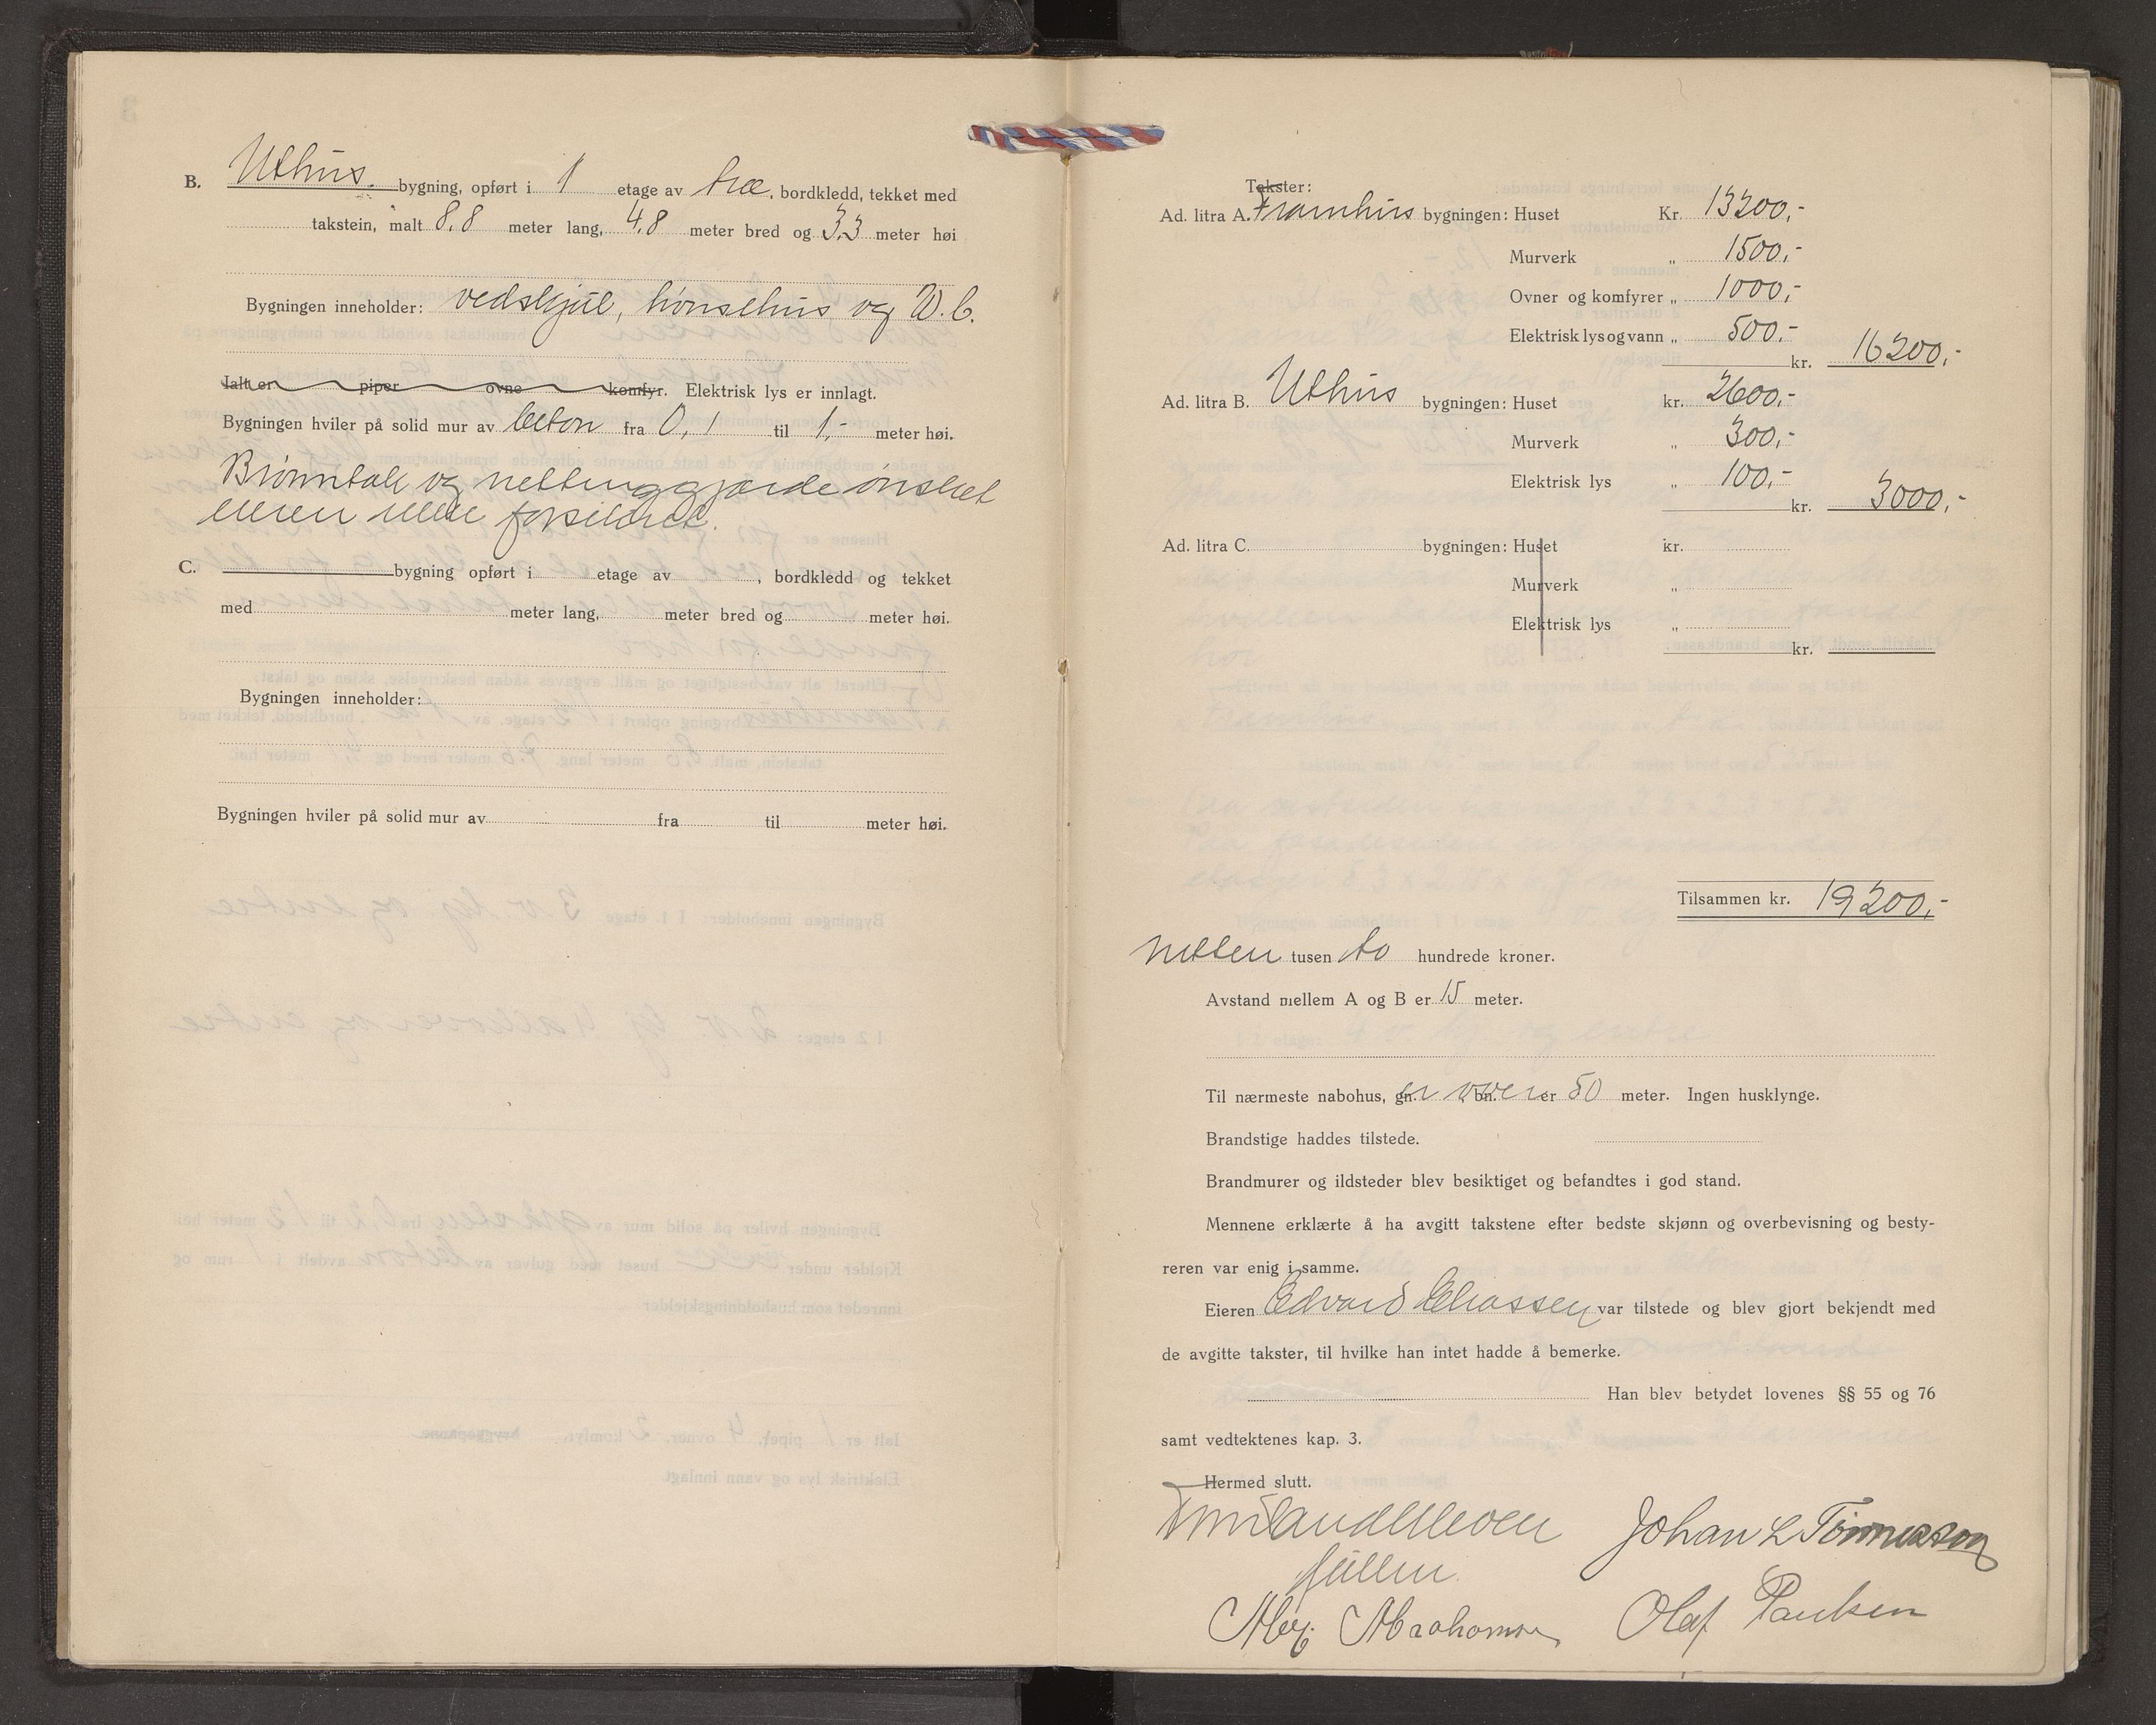 B. Uthus. bygning, opført i 1 etage av træ, bordkledd, tekket med
takstein, malt 8,8 meter lang, 4,8 meter bred og 3,3 meter høi
Bygningen inneholder: vedskjul, hønsehus og W.C.
Ialt er piper ovne komfyr. Elektrisk lys er innlagt.
Bygningen hviler på solid mur av beton fra 0,1 til 1,- meter høi.
Brønntak og nettinggjærde ønsket
eieren ikke forsikret.
C. bygning opført i etage av , bordkledd og tekket
med meter lang, meter bred og meter høi.
Bygningen inneholder:
Bygningen hviler på solid mur av fra til meter høi.
Takster:
Ad. litra A. Framhus bygningen: Huset Kr. 13200,-
Murverk „ 1500,-
Ovner og komfyrer „ 1000,-
Elektrisk lys og vann „ 500,-
kr. 16200,-
Ad. litra B. Uthus bygningen: Huset kr. 2600,-
Murverk „ 300,-
Elektrisk lys „ 100,-
kr. 3000,-
Ad. litra C. bygningen: Huset kr.
Murverk „
Elektrisk lys „
kr.
Tilsammen kr. 19200,-
nitten tusen to hundrede kroner.
Avstand mellem A og B er 15 meter.
Til nærmeste nabohus, gn. er over bn. er 50 meter. Ingen husklynge.
Brandstige haddes tilstede.
Brandmurer og ildsteder blev besiktiget og befandtes i god stand.
Mennene erklærte å ha avgitt takstene efter bedste skjønn og overbevisning og besty-
reren var enig i samme.
Eieren Edvard Eliassen var tilstede og blev gjort bekjendt med
de avgitte takster, til hvilke han intet hadde å bemerke.
Han blev betydet lovenes §§ 55 og 76
samt vedtektenes kap. 3.
Hermed slutt.
Johan L Tönnesson
Alex. Abrahamsen Olaf Paulsen